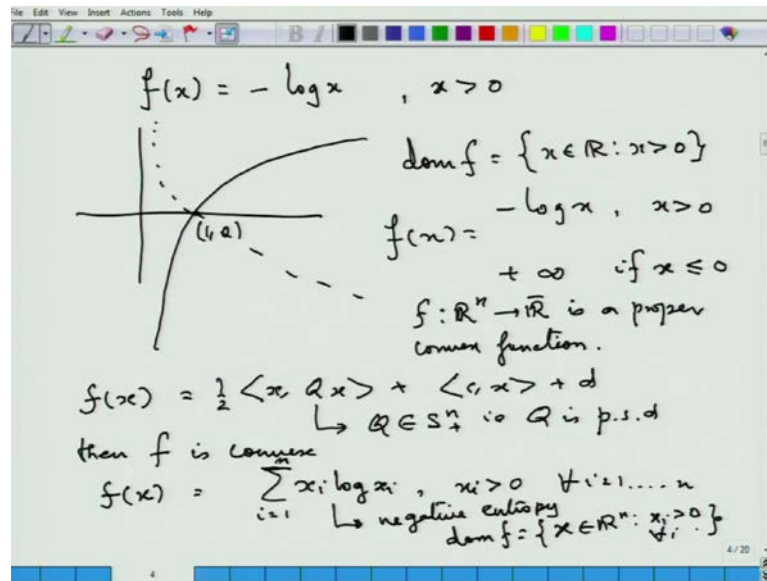 File Edit View Insert Actions Tools Help
f(x) = - log x , x > 0
dom f = { x ∈ ℝ : x > 0 }
(1, 0)
f(x) = - log x , x > 0
+ ∞ if x ≤ 0
f : ℝⁿ → ℝ̄ is a proper
convex function.
f(x) = 1/2 <x, Qx> + <c, x> + d
↳ Q ∈ Sⁿ₊ ie Q is p.s.d
then f is convex
f(x) = ∑ⁿᵢ₌₁ xᵢ log xᵢ , xᵢ > 0 ∀ i = 1 .... n
↳ negative entropy
dom f = { x ∈ ℝⁿ : xᵢ > 0 ∀ i }
4 / 20
4